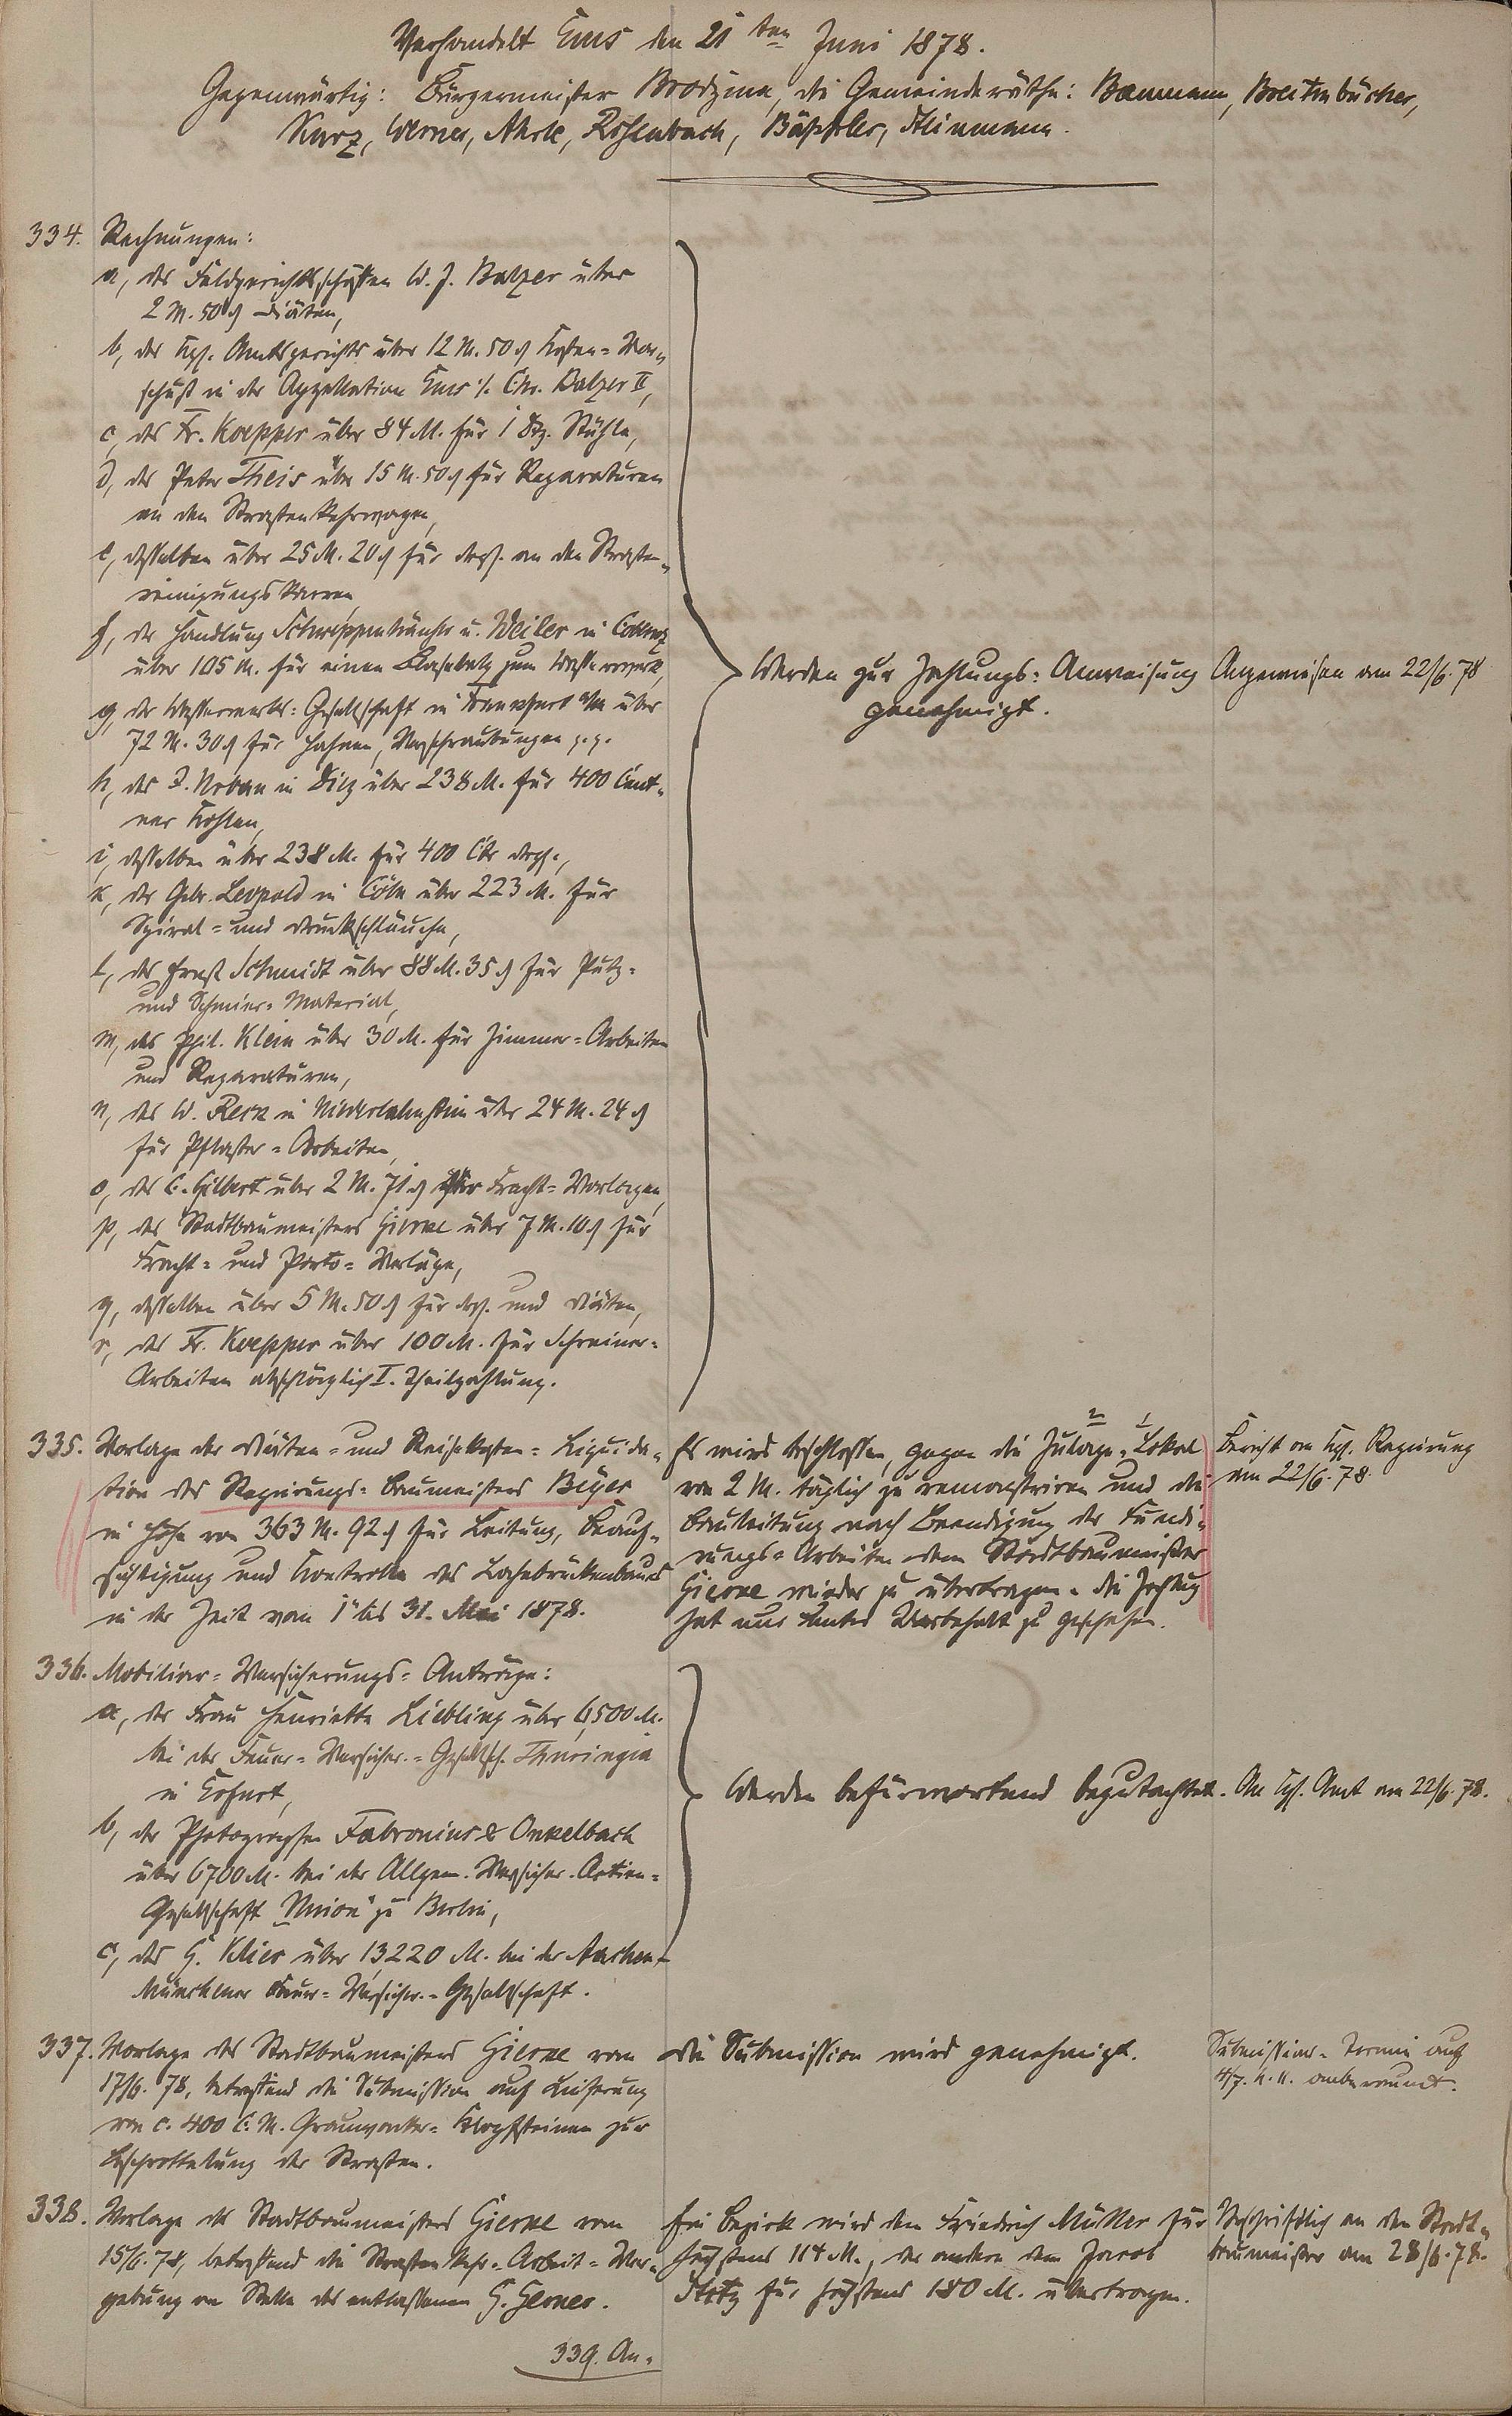 Verhandelt Ems den 21ten Juni 1878.
Gegenwärtig: Bürgermeister Brodzina, die Gemeinderäthe: Baumann, Breitenbücher,
Kurz, Werner, Ahrle, Rohrbach, Bäppler, Heinmann.
334. Rechnungen:
a, des Feldgerichtsschöffen W. J. Balzer über
2 M. 50 ₰ Diäten,
b, des Kgl. Amtsgerichts über 12 M. 50 ₰ Kosten-Vor-
schuß in der Appellation Ems ./. Chr. Balzer II,
c, des Fr. Koepper über 84 M. für 1 Dtz. Stühle,
d, des Peter Theis über 15 M. 50 ₰ für Reparaturen
an den Straßenkehrwagen,
e, desselben über 25 M. 20 ₰ für desgl. an den Straßen-
reinigungskarren
f, der Handlung Schweppenhäuser u. Weiler in Coblenz
über 105 M. für einen Blasebalg zum Wasserwerk,
g, der Wasserwerks-Gesellschaft in Frankfurt a/M über
72 M. 30 ₰ für Hahnen, Verschraubungen p.p.
h, des J. Urban in Diez über 238 M. für 400 Cent-
ner Kohlen,
i, desselben über 238 M. für 400 Ctr desgl.,
k, der Gebr. Leopold in Cöln über 223 M. für
Spiral- und Druckschläuche,
l, des Ernst Schmidt über 88 M. 35 ₰ für Putz-
und Schmier-Material,
m, des Phil. Klein über 30 M. für Zimmer-Arbeiten
und Reparaturen,
n, des W. Reck in Niederlahnstein über 24 M. 24 ₰
für Pflaster-Arbeiten,
o, des C. Gilbert über 2 M. 71 ₰ für Fracht-Vorlagen,
p, des Stadtbaumeisters Gierke über 7 M. 10 ₰ für
Fracht- und Porto-Verläge,
q, desselben über 5 M. 50 ₰ für desgl. und Diäten,
r, des Fr. Koepper über 100 M. für Schreiner-
Arbeiten abschläglich I. Theilzahlung.
Werden zur Zahlungs-Anweisung
genehmigt.
Angewiesen am 22/6.78
335. Vorlage der Diäten- und Reisekosten-Liquida-
tion des Regierungs-Baumeisters Beyer
in Höhe von 363 M. 92 ₰ für Leitung, Beauf-
sichtigung und Kontrolle des Lahnbrückenbaues
in der Zeit vom 1 bis 31. Mai 1878.
Es wird beschlossen, gegen die Zulage-Lokal
2 1
von 2 M. täglich zu remonstriren und die
Bauleitung nach Beendigung der Fundi-
rungs-Arbeiten dem Stadtbaumeister
Gierke wieder zu übertragen. Die Zahlung
hat nur unter Vorbehalt zu geschehen.
Bericht an Kgl. Regierung
am 22/6.78.
336. Mobiliar-Versicherungs-Anträge:
a, der Frau Henriette Liebling über 6,500 M.
bei der Feuer-Versicher.-Gesellsch. Thuringia
in Erfurt,
b, der Photographen Fabronius & Onkelbach
über 6700 M. bei der Allgem. Versicher.-Actien-
Gesellschaft „Union" zu Berlin,
c, des G. Klier über 13,220 M. bei der Aachen-
Münchener Feuer-Versicher.-Gesellschaft.
Werden befürwortend begutachtet.
An Kgl. Amt am 22/6.78.
337. Vorlage des Stadtbaumeisters Gierke vom
17/6. 78, betreffend die Submission auf Lieferung
von c. 400 C. M. Grauwacke-Klopfsteinen zur
Beschotterung der Straßen.
Die Submission wird genehmigt.
Submissions-Termin auf
4/7. h. a. anberaumt.
338. Vorlage des Stadtbaumeisters Gierke vom
15/6.78, betreffend die Straßenkehr-Arbeit-Ver-
gebung an Stelle des entlassenen G. Gerner.
Ein Bezirk wird dem Friedrich Müller für
höchstens 114 M., der andere dem Jacob
Stotz für höchstens 180 M. übertragen.
Abschriftlich an den Stadt-
baumeister am 28/6.78.
339. An-